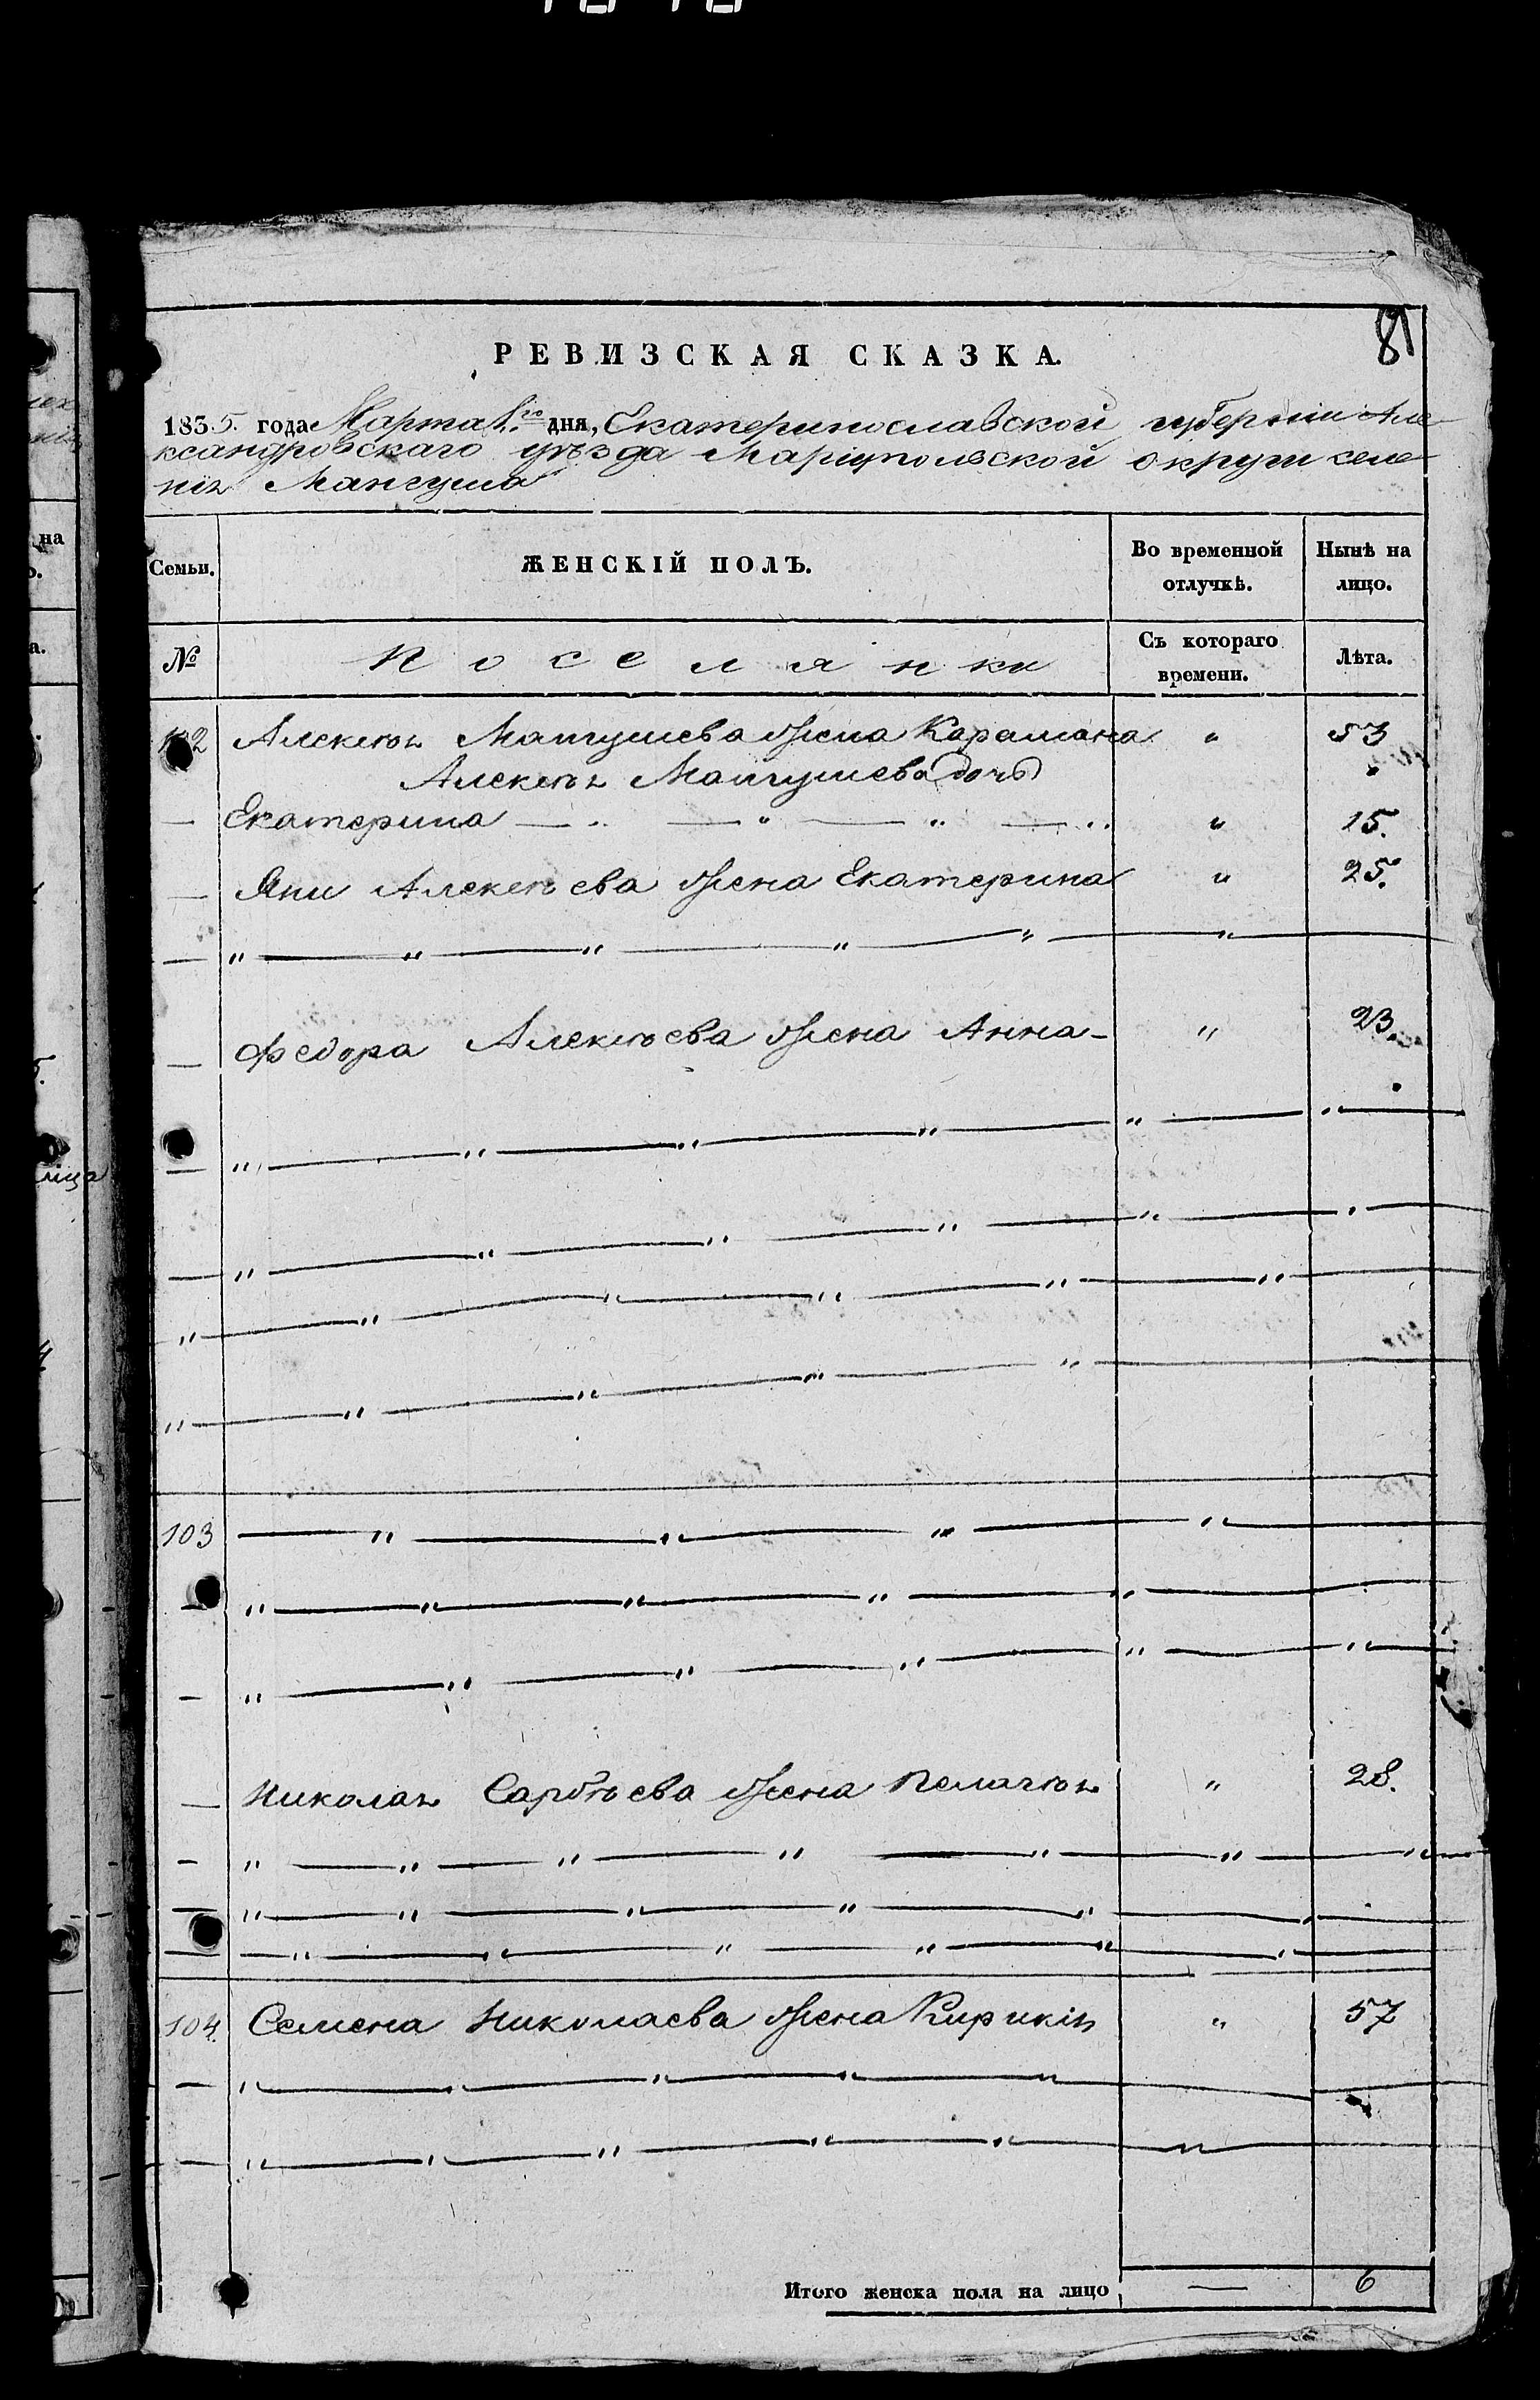 81
РЕВИЗСКАЯ СКАЗКА.
1835. года Марта 1го дня, Екатеринославской губерніи Але-
ксандровскаго уѣзда Маріупольской округи селе-
нія Мангуша
Семьи. ЖЕНСКІЙ ПОЛЪ. Во временной отлучкѣ. Нынѣ на лицо.
№ Поселянки Съ котораго времени. Лѣта.
102 Алексѣя Мангушева жена Карамана " 53
Алексѣя Мангушева дочь "
— Екатерина — " — " — " — " " 15.
— Яни Алексѣева жена Екатерина " 25.
— " — " — " — " — " — "
— Федора Алексѣева жена Анна - " 23
— " — " — " — " — " — "
— " — " — " — " — " — "
" — " — " — " — " — "
" — " — " — " — "
103 — " — " — " — "
— " — " — " — " — "
— " — " — " — " — " — "
— Николая Сарбѣева жена Пелагѣя " 28.
— " — " — " — " — " — " — "
— " — " — " — " — " — "
— " — " — " — " — " — "
104. Семена Николаева жена Кирикія " 57
— " — " — " — " — "
— " — " — " — " — " — "
Итого женска пола на лицо — 6